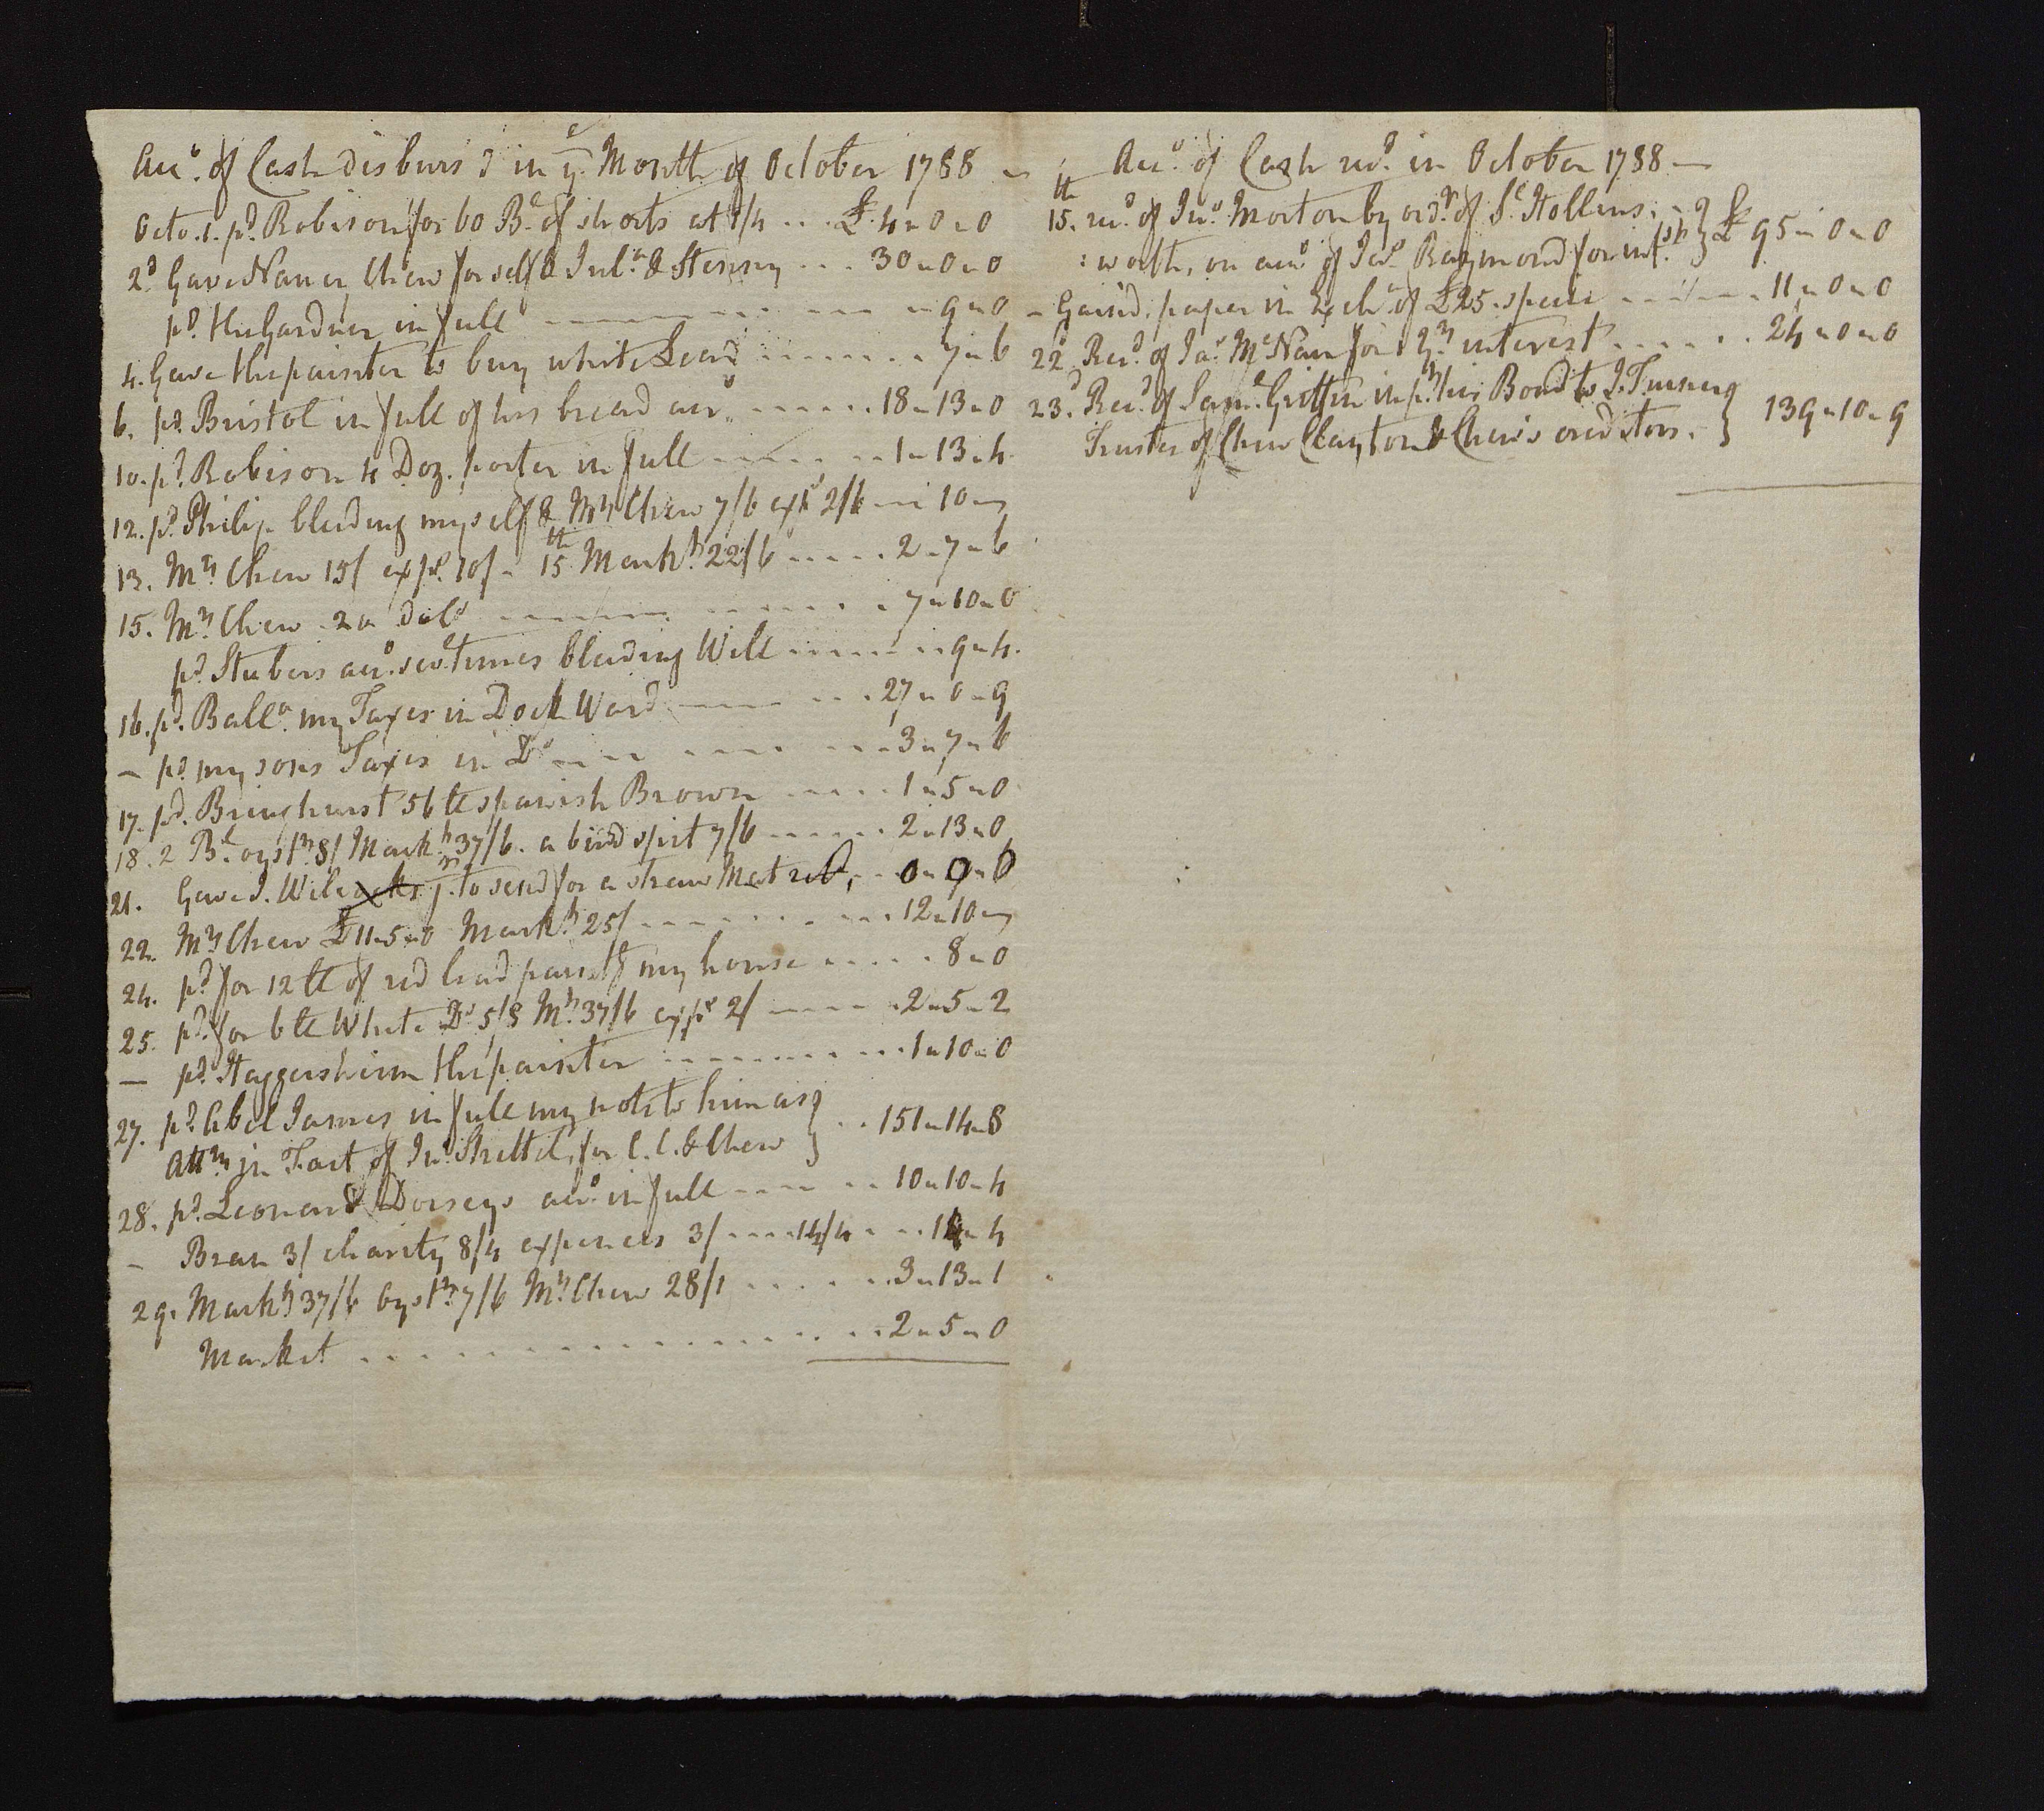 Acco. of Cash disburs'd in ye. Month of October 1788 –
Octo. 1. pd. Robison for 60 Bl. of shorts at 1/4 ... £ 4 " 0 " 0
2d Gave Nancy Chew for self & Jula. & Henny ... 30 " 0 " 0
pd. the Gardner in full ---- " 9 " 0
4. Gave the painter to buy white Lead ....... 7 " 6
6. pd. Bristol in full of his bread acco. ...... 18 " 13 " 0
10. pd. Robison 4 Doz. porter in full ---- 1 " 13 " 4
12. pd. Philip bleeding myself & Mrs Chew 7/6 exps 2/6 --- 10 "
13. Mrs Chew 15/ exps. 10/ – 15th Markt. 22/6 ---- 2 " 7 " 6
15. Mrs Chew 20 dols ---- 7 " 10 " 0
pd. Stubers acco. sevl. times bleeding Will ---- " 9 " 4
16. pd. Balla. my Taxes in Dock Ward ---- 27 " 0 " 9
– pd. my sons Taxes in Do ---- 3 " 7 " 6
17. pd. Bringhurst 56 lb spanish Brown ---- 1 " 5 " 0
18. 2 Bl. oystrs. 8/ Markt. 37/6. a bird spit 7/6 ---- 2 " 13 " 0
21. Gave J. Wilcocks jr. to send for a straw Matress, -- 0 " 9 " 6
22. Mrs Chew £11 " 5 " 0 Markt. 25/ ---- 12 " 10 "
24. pd. for 12 lb of red lead paintg my house ..... 8 " 0
25. pd. for 6 lb White Do 5/8 Mt. 37/6 exps 2/ ---- 2 " 5 " 2
– pd. Haggersheim the painter ---- 1 " 10 " 0
27. pd. Abel James in full my note to him as }
Atty in Fact of Jno. Strettel, for C. C. & Chew } .. 151 " 14 " 8
28. pd. Leonard Dorseys acco. in full ---- 10 " 10 " 4
– Bran 3/ charity 8/4 expences 3/ --- 14/4 -- 14 " 4
29. Markt 37/6 Oystrs. 7/6 Mrs Chew 28/1 ...... 3 " 13 " 1
Market .............. 2 " 5 " 0
Acco. of Cash recd. in October 1788 –
15th. recd. of Jno. Morton by ordr. of Sl. Hollins: - }
: worth, on acco. of Jas. Raymond for intst. } £ 95 " 0 " 0
– Gained, paper in Exche. of £25. specie ---- 11 " 0 " 0
22d Recd. of Jas. McNair for 1 yrs interest ...... 24 " 0 " 0
23d. Recd. of Saml. Griffin in pt. his Bond to J. Turner }
Trustee of Chew Clayton & Chew's creditors. } 139 " 10 " 9